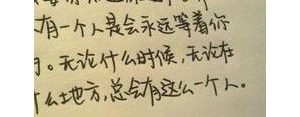 有一个人是会永远等着你
。无论什么时候,无论在
什么地方,总会有这么一个人。